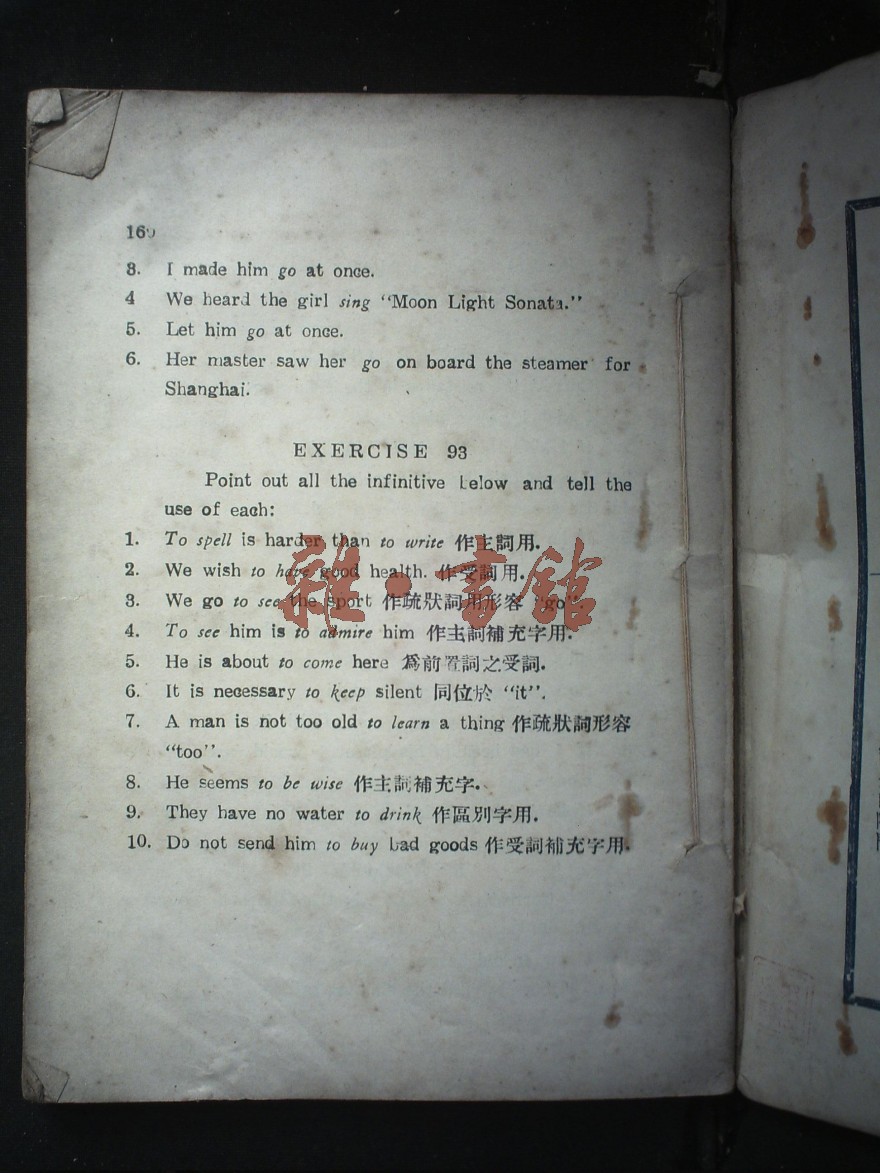 160
3. I made him go at once.
4 We heard the girl sing “Moon Light Sonata.”
5. Let him go at once.
6. Her master saw her go on board the steamer for
Shanghai.
EXERCISE 93
Point out all the infinitive below and tell the
use of each:
1. To spell is harder than to write 作主詞用.
2. We wish to have good health. 作受詞用.
3. We go to see the sport 作疏狀詞用形容 “go”
4. To see him is to admire him 作主詞補充字用.
5. He is about to come here 爲前置詞之受詞.
6. It is necessary to keep silent 同位於 “it”.
7. A man is not too old to learn a thing 作疏狀詞形容
“too”.
8. He seems to be wise 作主詞補充字.
9. They have no water to drink 作區別字用.
10. Do not send him to buy bad goods 作受詞補充字用.
雜·書館